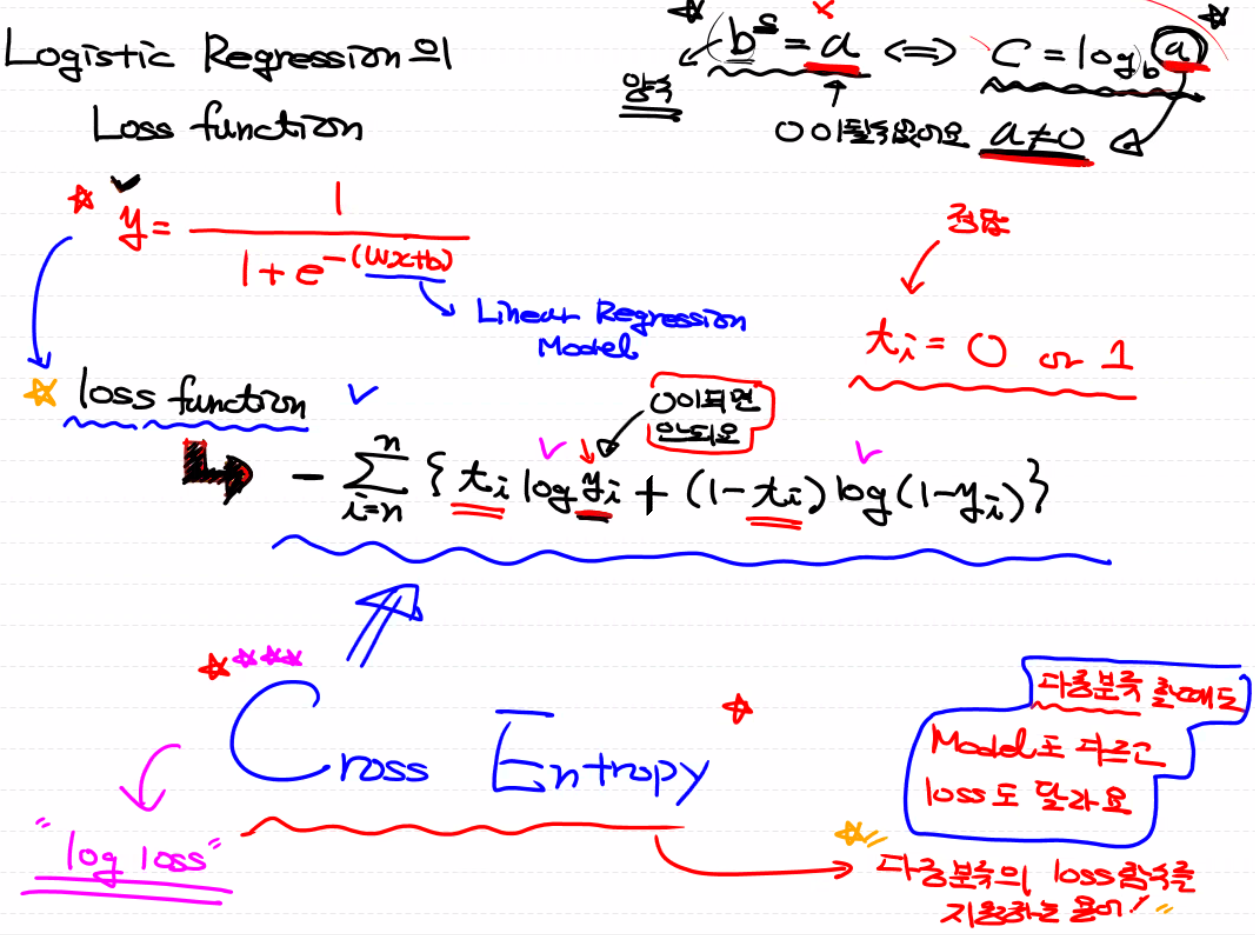 Logistic Regression의
Loss function
b^c = a ⟺ c = log_b a
양수
0이될수없어요 a≠0
y = 1 / (1 + e^-(Wx+b))
Linear Regression
Model
정답
t_i = 0 or 1
loss function
0이되면
안되요
- Σ_{i=n}^{n} { t_i log y_i + (1-t_i) log(1-y_i) }
Cross Entropy
"log loss"
다중분류 할때도
Model도 다르고
loss도 달라요
다중분류의 loss함수를
지칭하는 용어!